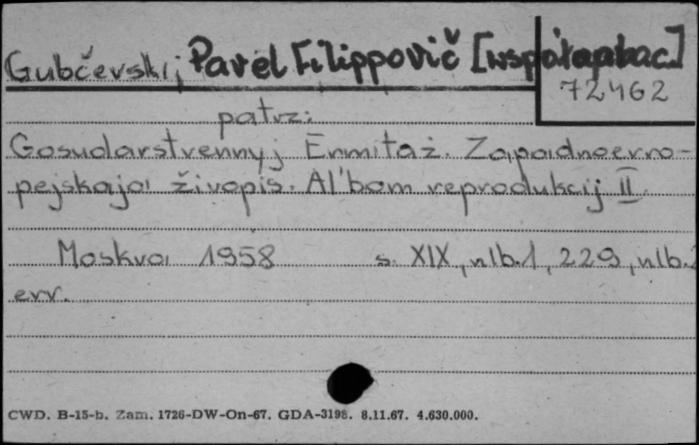 Gubčevskij, Pavel Filippovič [współoprac.]
72462
patrz:
Gosudarstvennyj Ermitaż. Zapadnoevro-
pejskaja živopis. Al'bom reprodukcij II
Moskva 1958 s. XIX, nlb.1, 229, nlb.
err.
CWD. B-15-b. Zam. 1726-DW-On-67. GDA-3198. 8.11.67. 4.630.000.